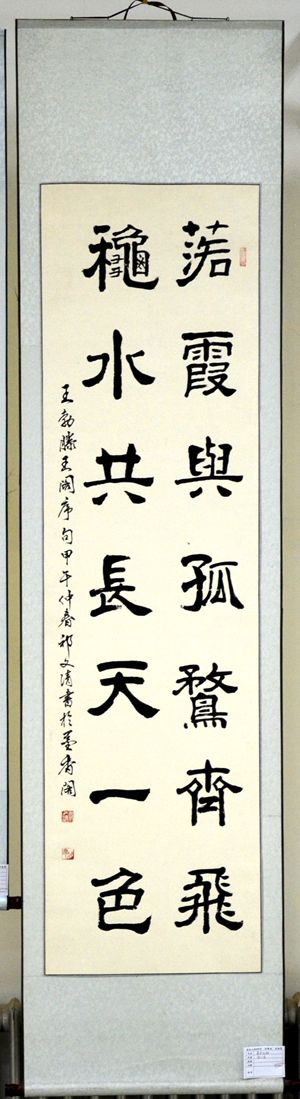 落霞與孤鶩齊飛
龝水共長天一色
王勃滕王阁序句甲午仲春祁文清書於墨香阁